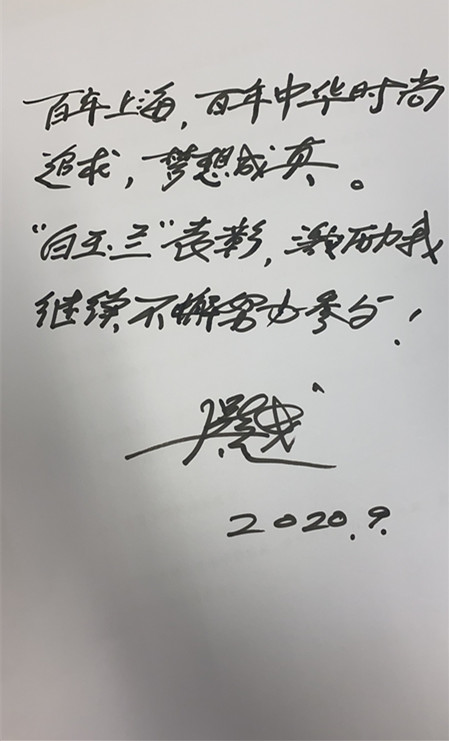 百年上海，百年中华时尚
追求，梦想成真。
“白玉兰”表彰，激励我
继续不懈努力参与！
2020.9.